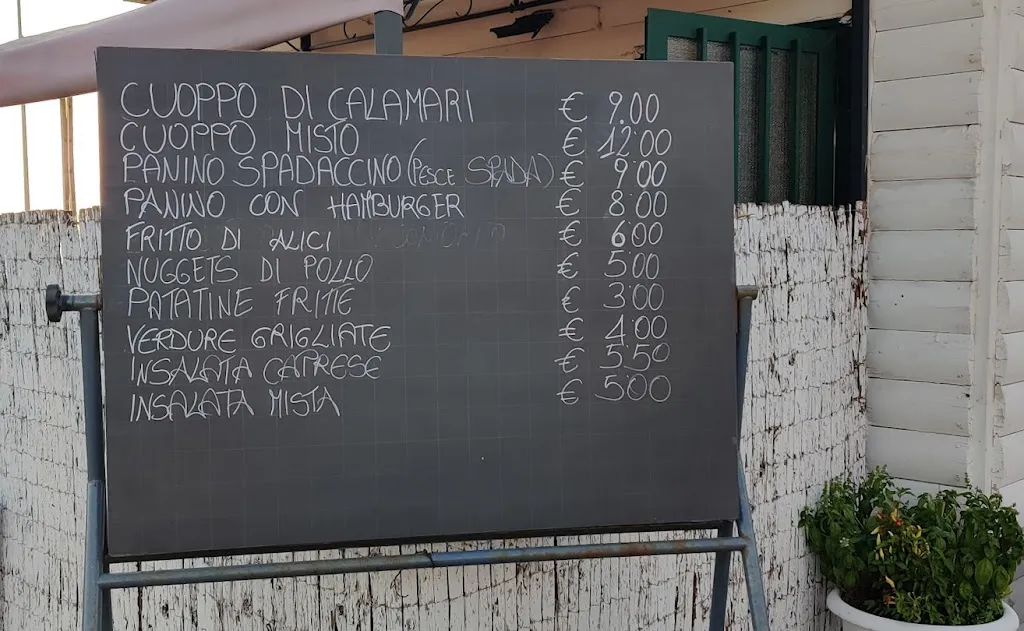 CUOPPO DI CALAMARI € 9.00
CUOPPO MISTO € 12.00
PANINO SPADACCINO (PESCE SPADA) € 9.00
PANINO CON HAMBURGER € 8.00
FRITTO DI ALICI € 6.00
NUGGETS DI POLLO € 5.00
PATATINE FRITTE € 3.00
VERDURE GRIGLIATE € 4.00
INSALATA CAPRESE € 5.50
INSALATA MISTA € 5.00